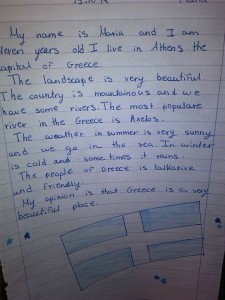 My name is Mania and I am
eleven years old I live in Athens the
capital of Greece.
The landscape is very beautiful.
The country is mountainous and we
have some rivers. The most populare
river in the Greece is Axelos.
The weather in summer is very sunny
and we go in the sea. In winter
is cold and some times it rains.
The people of Greece is talkative
and friendly.
My opinion is that Greece is a very
beautiful place.